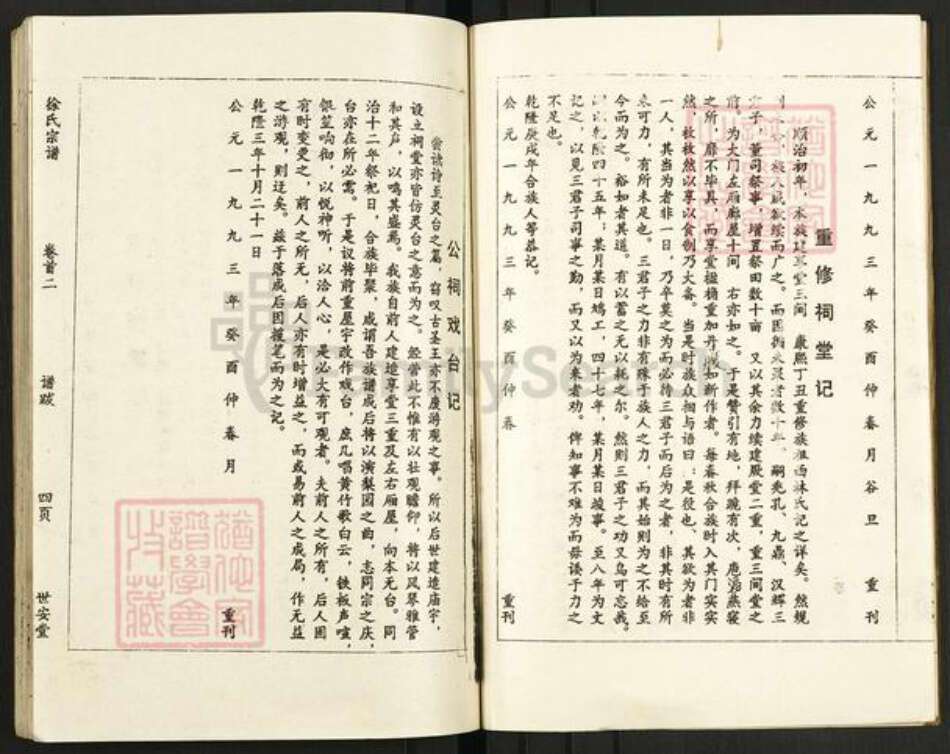 公元一九九三年癸酉仲春月谷旦 重刊
重修祠堂记
顺治初年，本族建享堂三间 康熙丁丑重修族淮西沐氏记之详矣。然规
族人咸欲续而广之。而因循未及者数十年。嗣兆孔、九鼎、汉辉三
君子，董司祭事，增置祭田数十亩 又以其余力续建殿堂二重，重三间堂之
前，为大门左厢廊屋十间 右亦如之。于是赞引有地，拜跪有次，庖湢燕寝
之所，靡不毕具 而享堂楹桷重加丹 如新作者。每春秋合族时入其门实实
然，枚枚然以享以食制乃大备。当是时族众相与语曰：是役也、其欲为者非
一人，其当为者非一日，乃卒莫之为而必待三君子而后为之者，非其时有所
未可力，有所未足也。三君子之力非有殊于族人之力，而其始则为之不给至
今而为之。裕如者其道。有以蓄之无以耗之尔。然则三君子之功又乌可忘哉。
以乾隆四十五年；某月某日鸠工，四十七年，某月某日竣事。至八年为文
记之，以见三君子司事之勤，而又以为来者劝。俾知事不难为而毋诿于力之
不足也。
乾隆庚戌年合族人等恭记。
公元一九九三年癸酉仲春 重刊
公祠戏台记
尝读诗至灵台之篇，窃叹古圣王亦不废游观之事。所以后世建造庙宇，
设立祠堂亦皆仿灵台之意而为之。经营此不惟有以壮观瞻仰，将以风琴雅管
和其声，以鸣其盛焉。我族自前人建造享堂三重及左右厢屋，向本无台。同
治十二年祭祀日，合族毕聚，咸谓吾族谱成后将以演梨园之曲，志同宗之庆，
台亦在所必需。于是议将前重屋宇改作戏台，庶几唱黄竹歌白云，铁板声喧，
银笙响彻，以悦神听，以洽人心，是必大有可观者。夫前人之所有，后人因
有时变更之，前人之所无，后人亦有时增益之，而或易前人之成局，作无益
之游观，则迂矣。兹于落成后因援笔而为之记。
乾隆三年十月二十一日
公元一九九三年癸酉仲春月 重刊
徐氏宗谱 卷首二 谱跋 四页 世安堂